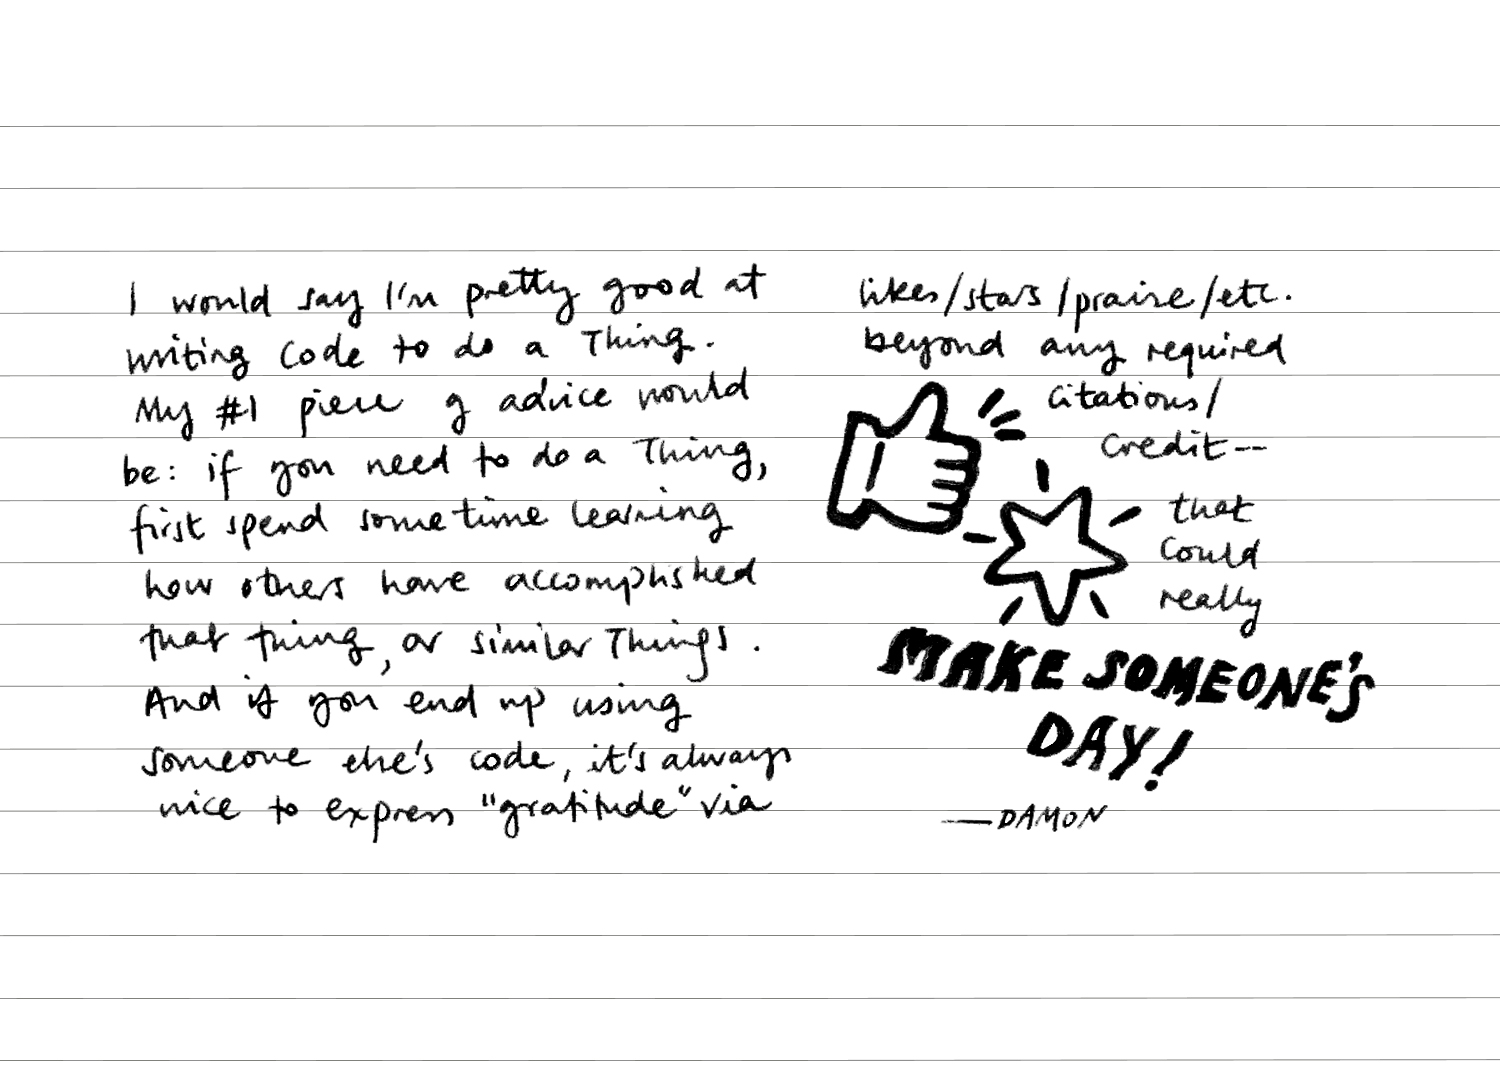 I would say I'm pretty good at
writing code to do a Thing.
My #1 piece of advice would
be: if you need to do a Thing,
first spend some time learning
how others have accomplished
that thing, or similar Things.
And if you end up using
someone else's code, it's always
nice to express "gratitude" via
likes/stars/praise/etc.
beyond any required
citations/
credit--
that
could
really
MAKE SOMEONE'S
DAY!
—DAMON